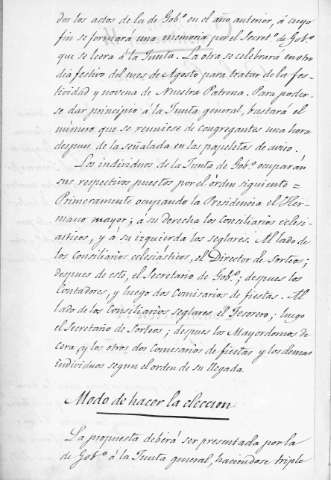 dos los actos de la de Gob.º en el año anterior, á cuyo
fin se formará una memoria por el Secret.º de Gob.º
que se leera á la Junta. La otra se celebrará en otro
dia festivo del mes de Agosto para tratar de la fes-
tividad y novena de Nuestra Patrona. Para poder-
se dar principio á la Junta general, bastará el
número que se reuniese de congregantes una hora
despues de la señalada en las papeletas de aviso.
Los individuos de la Junta de Gob.º ocuparán
sus respectivos puestos por el órden siguiente =
Primeramente ocupando la Presidencia el Her-
mano mayor; á su derecha los Conciliarios eclesi-
asticos, y á su izquierda los seglares. Al lado de
los Conciliarios eclesiásticos, el Director de Sorteos;
despues de esté, el Secretario de Gob.º; despues los
Contadores, y luego dos Comisarios de fiestas. Al
lado de los Conciliarios seglares el Tesorero; luego
el Secretario de Sorteos; despues los Mayordomos de
cera, y los otros dos Comisarios de fiestas y los demas
individuos segun el orden de su llegada.
Modo de hacer la eleccion
La propuesta deberá ser presentada por la
de Gob.º á la Junta general, haciendose triple